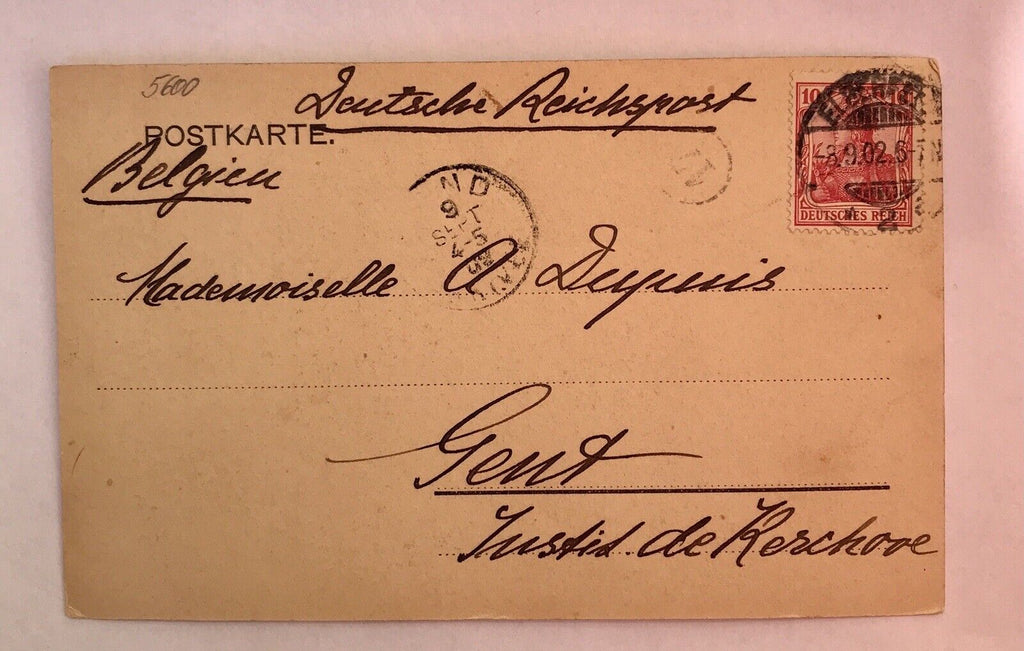 5600
Deutsche Reichspost
POSTKARTE.
Belgien
10
DEUTSCHES REICH
-8.9.02.6-7N
ND
9
SEPT
4-5
02
Mademoiselle A Dupuis
Gent
Justit de Kerchove